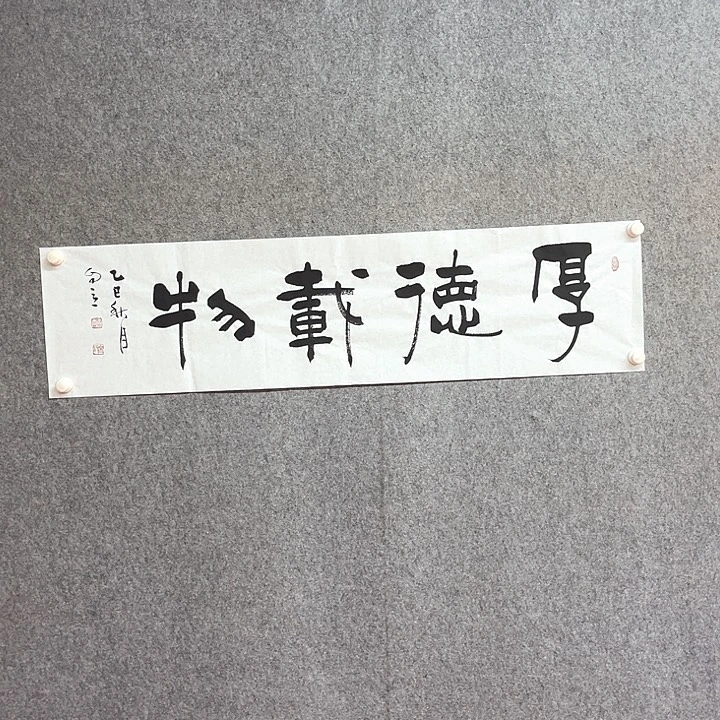 厚德載物
乙巳秋月